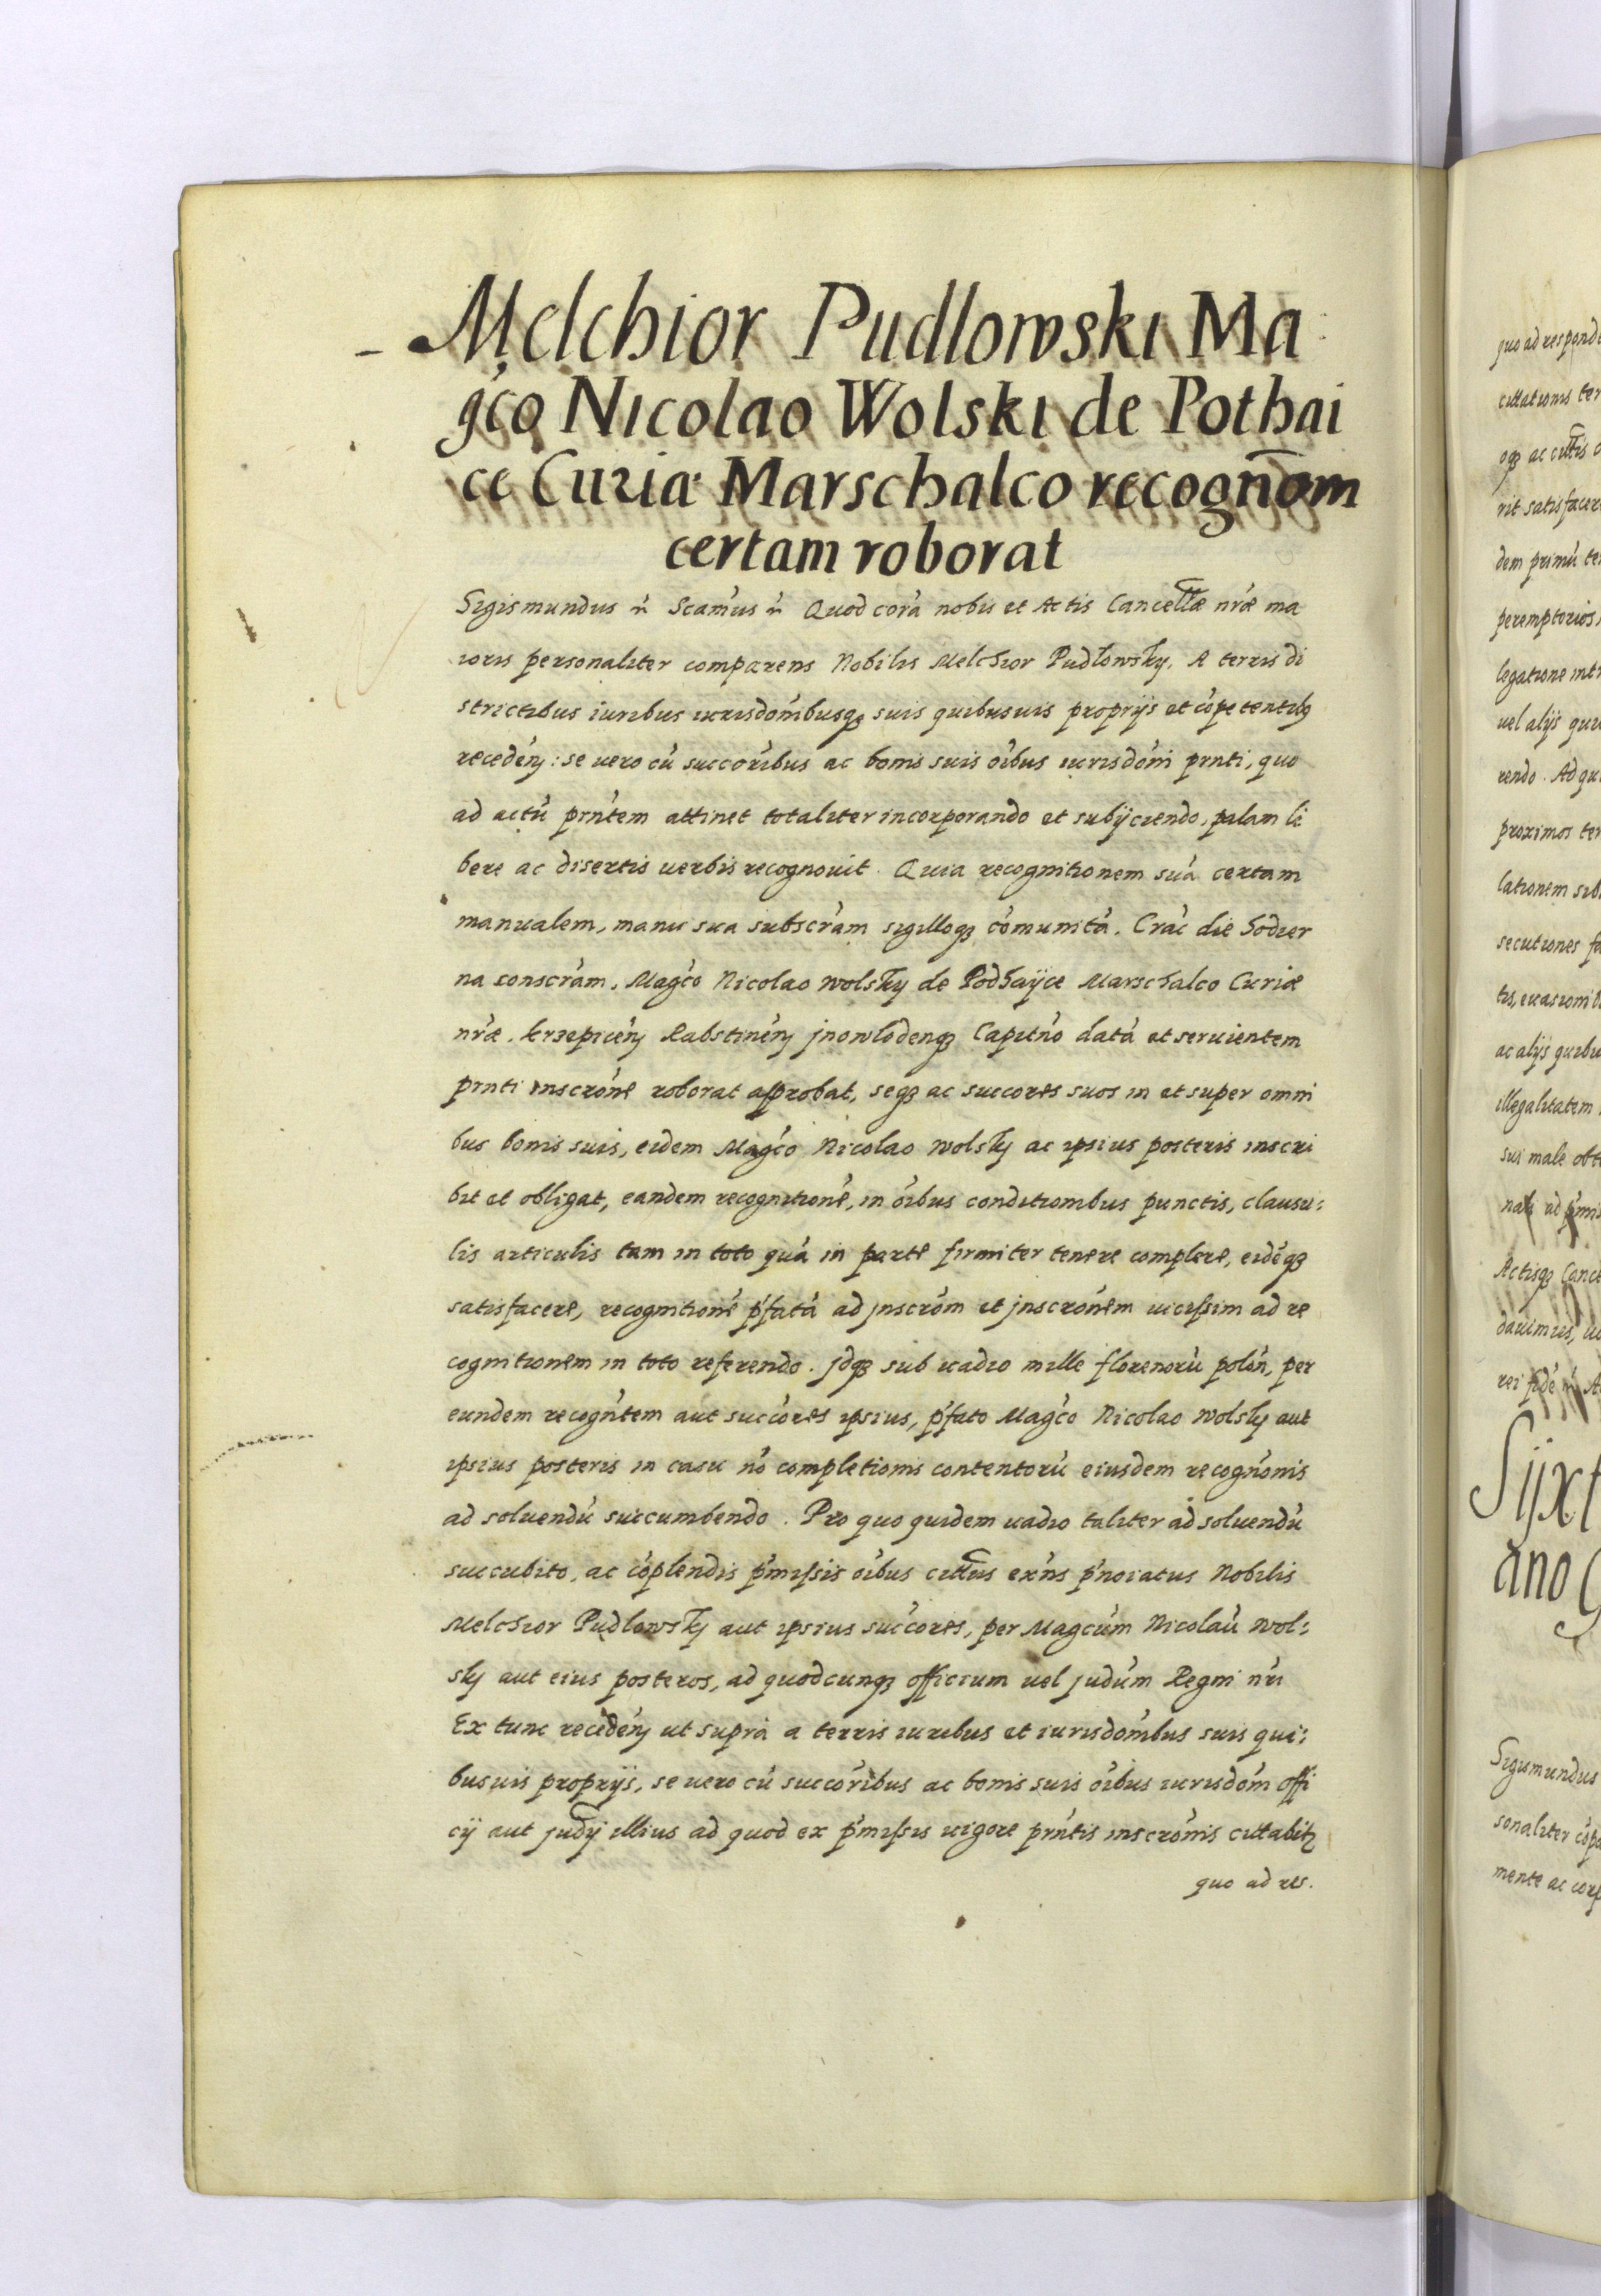 Melchior Pudlowski Ma
gco Nicolao Wolski de Pothai
ce Curiæ Marschalco recognōm
certam roborat
Sigismundus rc Scam̕us rc Quod cora̕ nobis et Actis Cancellæ nr̕æ ma
ioris personaliter comparens Nobilis Melchior Pudlowsky, A terris di
strictibus iuribus iurisdon̕ibusqȝ suis quibusuis proprijs et co̕petentibȝ
receden̕ȝ: se uero cu̕ succor̕ibus ac bonis suis oi̕bus iurisdon̕i prn̕ti, quo
ad actu̕ prn̕tem attinet totaliter incorporando et subijciendo, palam li
bere ac disertis uerbis recognouit. Quia recognitionem sua̕ certam
manualem, manu sua subscr̕am sigilloqȝ co̕munita̕. Crac̕ die hodier
na conscr̕am, Magc̕o Nicolao Wolsky de Podhayce Marschalco Curiæ
nr̕æ. Krzepicen̕ȝ Rabstinen̕ȝ jnowlodenqȝ Capitn̕o data̕ et seruientem
prn̕ti inscron̕e roborat approbat, seqȝ ac succores suos in et super omni
bus bonis suis, eidem Magc̕o Nicolao Wolsky ac ipsius posteris inscri
bit et obligat, eandem recognitione̕, in oi̕bus conditionibus punctis, clausu:
lis articulis tam in toto qua̕ in parte firmiter tenere complere, eide̕qȝ
satisfacere, recognitione̕ p̕fata̕ ad jnscro̕m et jnscron̕em uicissim ad re
cognitionem in toto referendo. jdqȝ sub uadio mille florenoru̕ polon̕, per
eundem recogn̕tem aut succo̕res ipsius, p̕fato Magc̕o Nicolao Wolsky aut
ipsius posteris in casu no̕ completionis contentoru̕ eiusdem recogno̕nis
ad soluendu̕ succumbendo. Pro quo quidem uadio taliter ad soluendu̕
succubito, ac co̕plendis p̕missis oi̕bus cittus exn̕s p̕noiatus Nobilis
Melchior Pudlowsky aut ipsius succo̕res, per Magcu̕m Nicolau̕ Wol:
sky aut eius posteros, ad quodcunqȝ officium uel judu̕m Regni nr̕i
Ex tunc receden̕ȝ ut supra a terris iuribus et iurisdon̕ibus suis qui:
busuis proprijs, se uero cu̕ succor̕ibus ac bonis suis oi̕bus iurisdo̕m offi
cij aut judij illius ad quod ex p̕missis uigore prn̕tis inscro̕nis cittabitȝ
quo ad res.
quo ad respond
cittationis ter
oqȝ ac cittis
rit satisfacer
dem primu̕ te
peremptorios
legatione int
uel alijs qui
rendo. Ad qu
proximos ter
lationem sib
secutiones
tis, euasioni
ac alijs quibu
illegalitatem
sui male obt
Actisqȝ Canc
dauimus,
rei fide̕ rc A
Sijxt
ano
Sigismundus
sonaliter co̕p
mente ac corp